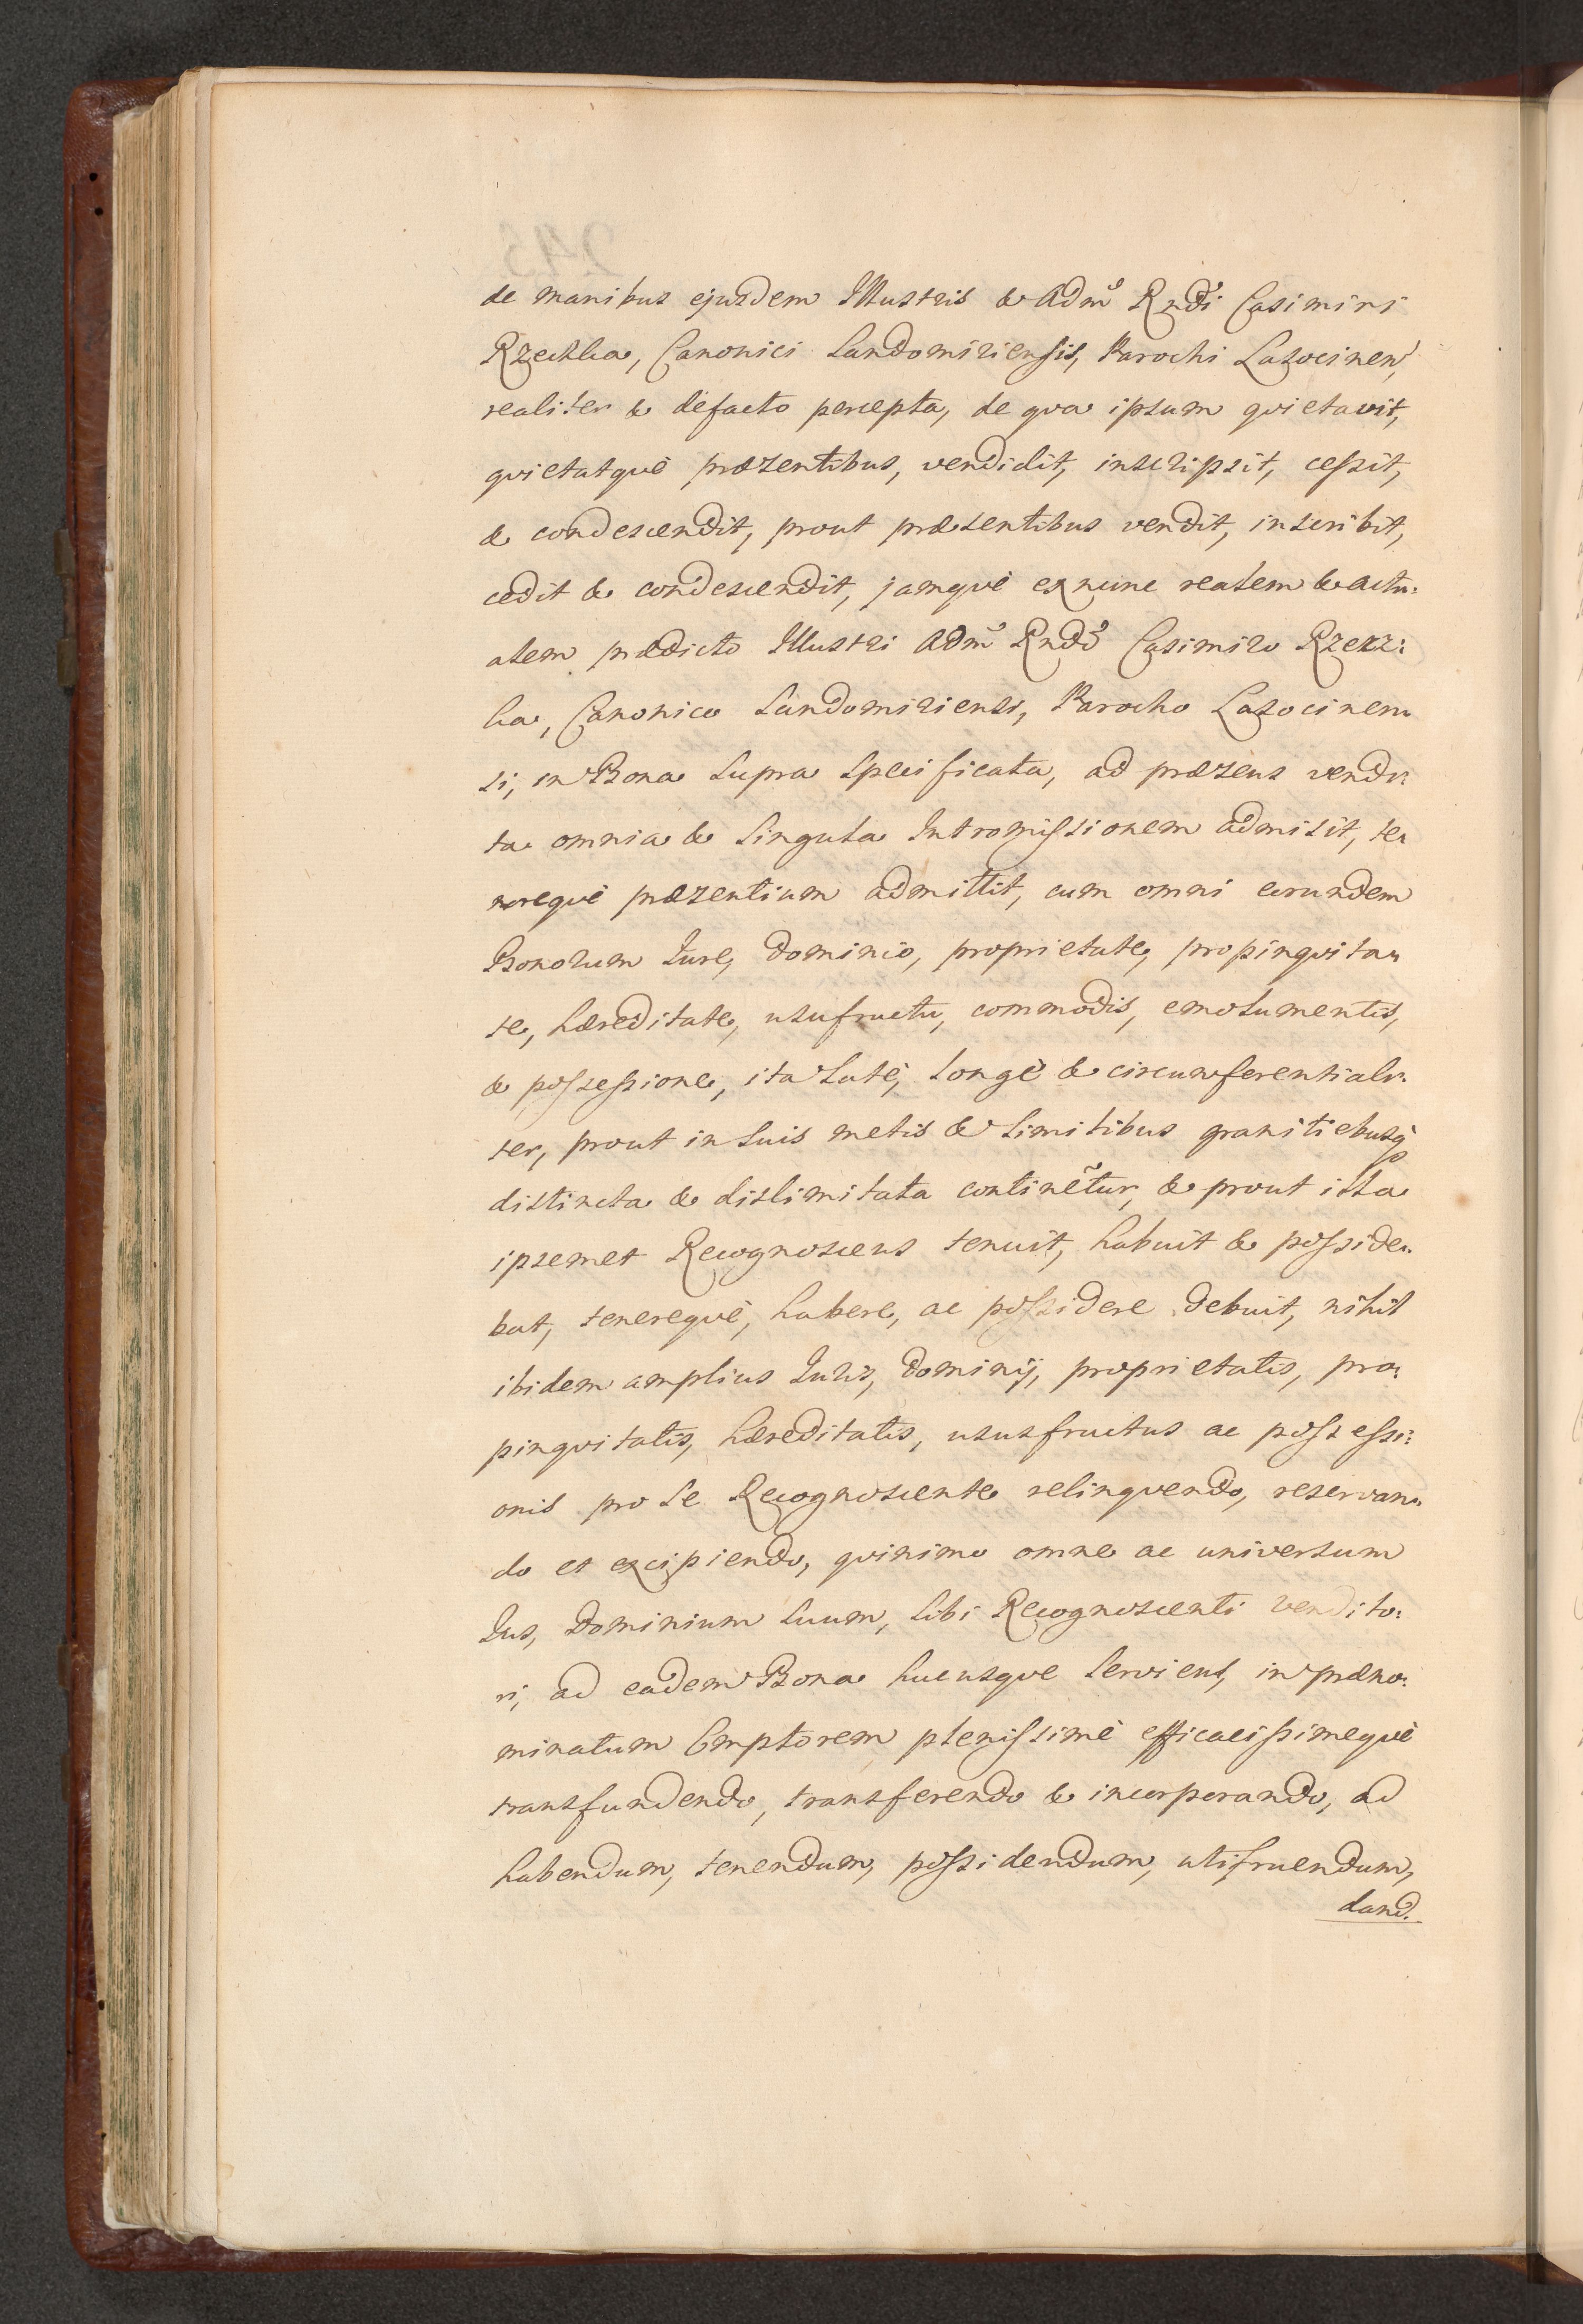 de manibus ejusdem Illustris & Adm̃ Rndi Casimiri
Rzeckha, Canonici Sandomiriensis, Parochi Lazocinen,
realiter & defacto percepta, de qva ipsum qvietavit,
qvietatqvè præsentibus, vendidit, inscripsit, cessit,
& condescendit, prout præsentibus vendit, inscribit,
cedit & condescendit, jamqvè exnunc realem & actu:
alem prædicto Illustri Adm̃ Rndo Casimiro Rzekz:
ha, Canonico Sandomiriensi, Parocho Lazocinen:
si, in Bona supra specificata, ad præsens vendi:
ta omnia & singula Intromissionem admisit, te:
noreqvè præsentium admittit, cum omni eorundem
Bonorum Jure, dominio, proprietate, propinqvita:
te, hæreditate, usufructu, commodis, emolumentis,
& possessione, ita latè, longè & circumferentiali:
ter, prout in suis metis & limitibus granitiebusq̀
distincta & dislimitata continẽtur, & prout illa
ipsemet Recognoscens tenuit, habuit & posside:
bat, tenereqvè, habere, ac possidere debuit, nihil
ibidem amplius Juris, dominij, proprietatis, pro:
pinqvitatis, hæreditatis, ususfructus ac possessi:
onis pro se Recognoscente relinqvendo, reservan:
do et excipiendo, qvinimo omne ac universum
Jus, Dominium suum, sibi Recognoscenti vendito:
ri, ad eadem Bona hucusqve serviens, in præno:
minatum Emptorem plenissimè efficacissimeqvè
transfundendo, transferendo & incorporando, ad
habendum, tenendum, possidendum, utifruendum,
dand.